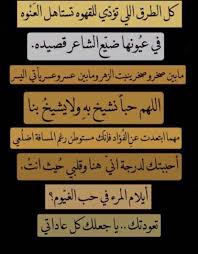 كل الطرق اللي تؤدّي للقهوه تستاهل العَنوه
في عيُونها ضيّع الشاعر قصيده.
مابين صخر وصخر ينبت الزهر ومابين عسر وعسر يأتي اليسر
اللهم حباً نشيخ بهِ ولا يشيخُ بنا
مهما ابتعدت عن الفُؤاد فإنك مستوطن رغم المسافة اضلُعي
أحببتك لدرجة انّي هنا وقلبي حُيث انتُ.
أيلام المرءُ في حب الغيُوم؟
تعودتك .. يا جعلك كل عاداتي